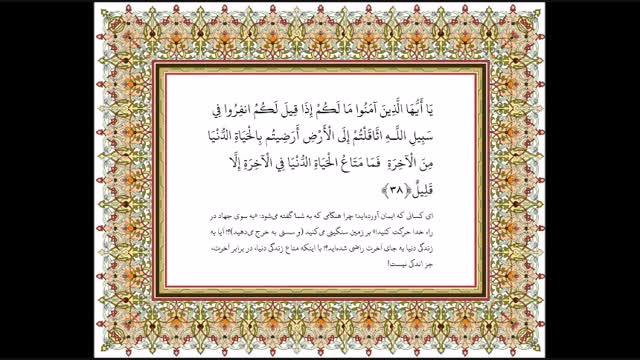 يَا أَيُّهَا الَّذِينَ آمَنُوا مَا لَكُمْ إِذَا قِيلَ لَكُمُ انفِرُوا فِي
سَبِيلِ اللَّـهِ اثَّاقَلْتُمْ إِلَى الْأَرْضِ أَرَضِيتُم بِالْحَيَاةِ الدُّنْيَا
مِنَ الْآخِرَةِ فَمَا مَتَاعُ الْحَيَاةِ الدُّنْيَا فِي الْآخِرَةِ إِلَّا
قَلِيلٌ ﴿٣٨﴾
ای کسانی که ایمان آورده‌اید! چرا هنگامی که به شما گفته می‌شود: «به سوی جهاد در
راه خدا حرکت کنید!» بر زمین سنگینی می‌کنید (و سستی به خرج می‌دهید)؟! آیا به
زندگی دنیا به جای آخرت راضی شده‌اید؟! با اینکه متاع زندگی دنیا، در برابر آخرت،
جز اندکی نیست!